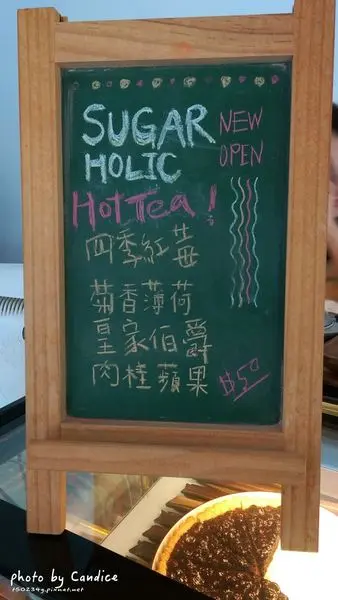 SUGAR
HOLIC
NEW
OPEN
HotTea!
四季紅莓
菊香薄荷
皇家伯爵
肉桂蘋果
$50
photo by Candice
t50234g.pixnet.net